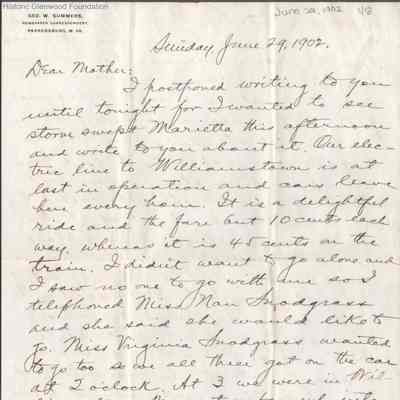 Historic Glenwood Foundation
June 29, 1902 1/2
GEO. W. SUMMERS,
NEWSPAPER CORRESPONDENT,
PARKERSBURG, W. VA.
Sunday, June 29, 1902.
Dear Mother:
I postponed writing to you
until tonight for I wanted to see
storm swept Marietta this afternoon
and write to you about it. Our elec-
tric line to Williamstown is at
last in operation and cars leave
here every hour. It is a delightful
ride and the fare but 10 cents each
way, whereas it is 45 cents on the
train. I didn't want to go alone and
I saw no one to go with me so I
telephoned Miss Nan Snodgrass
and she said she would like to
go. Miss Virginia Snodgrass wanted
to go too so we all three got on the car
at 2 o'clock. At 3 we were in Wil-